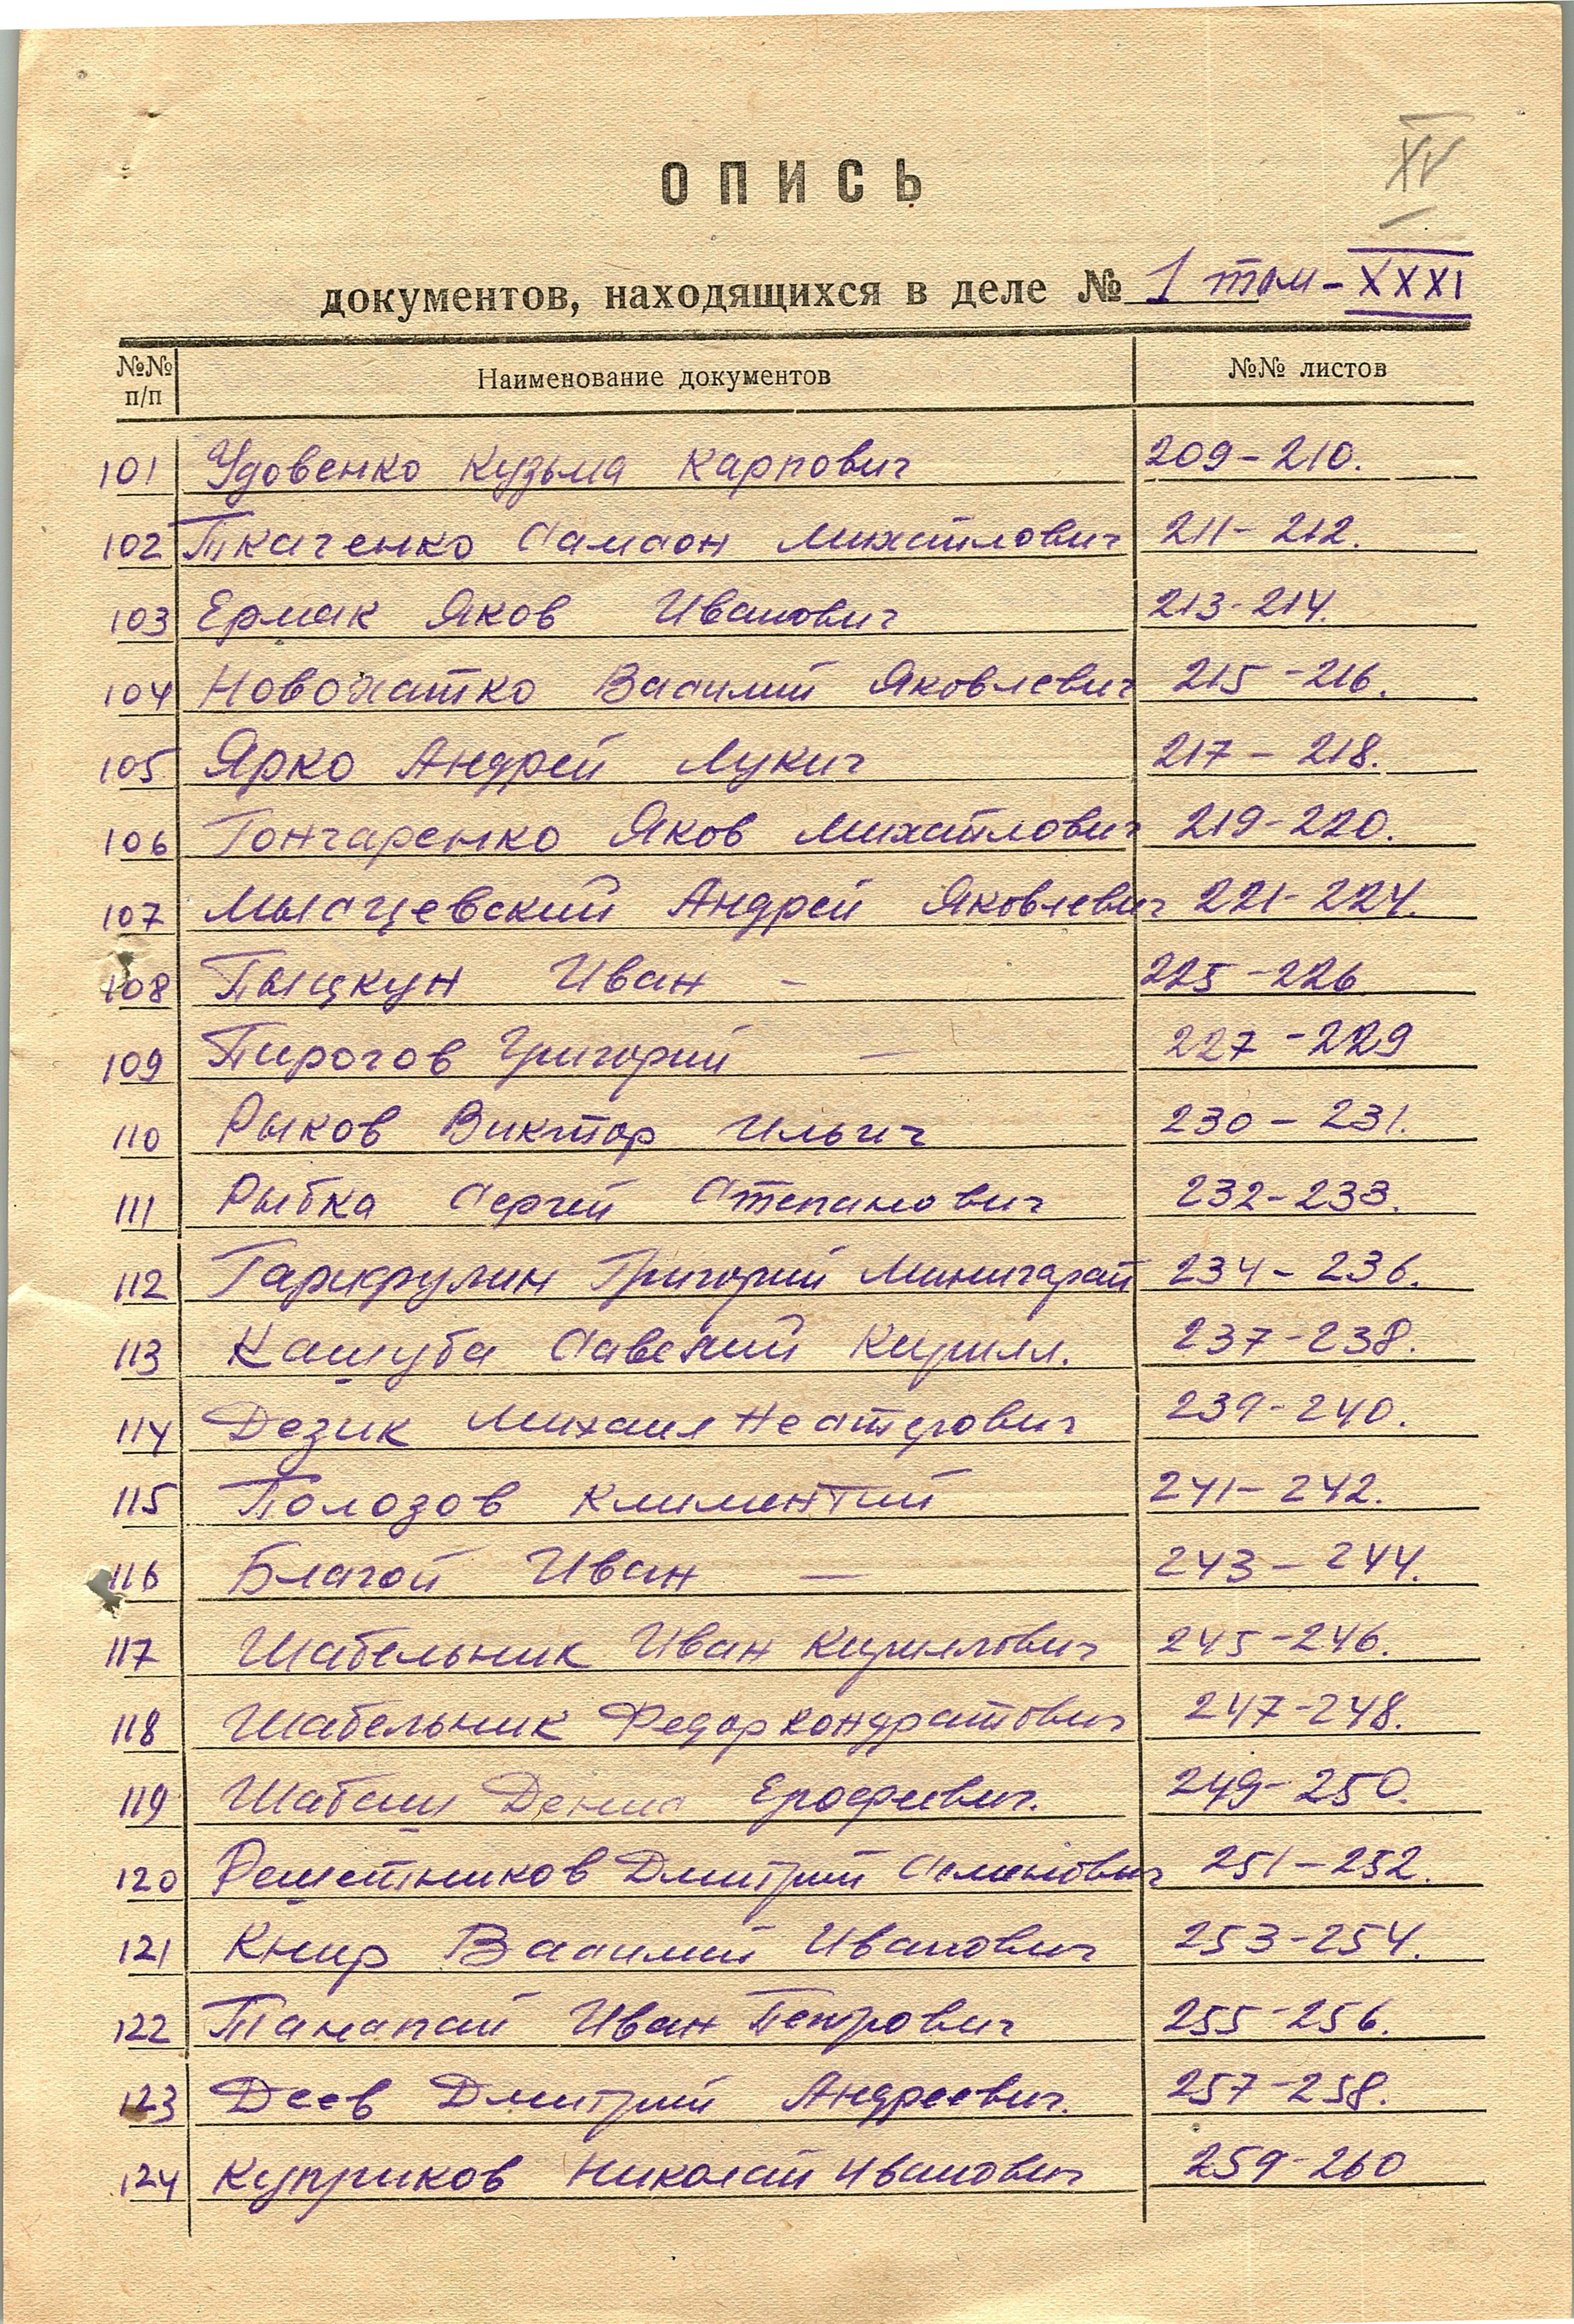 XV
ОПИСЬ
документов, находящихся в деле № 1 том - XXXI
№№ п/п Наименование документов №№ листов
101 Удовенко Кузьма Карпович 209-210.
102 Ткаченко Самсон Михайлович 211-212.
103 Ермак Яков Иванович 213-214.
104 Новохатко Василий Яковлевич 215-216.
105 Ярко Андрей Лукич 217-218.
106 Гончаренко Яков Михайлович 219-220.
107 Мысцевский Андрей Яковлевич 221-224.
108 Пыцкун Иван - 225-226
109 Пирогов Григорий — 227-229
110 Рыков Виктор Ильич 230-231.
111 Рыбка Сергей Степанович 232-233.
112 Гарифулин Григорий Минигарай 234-236.
113 Кашуба Савелий Кирилл. 237-238.
114 Дезик Михаил Нестерович 239-240.
115 Полозов Климентий 241-242.
116 Благой Иван — 243-244.
117 Шабельник Иван Кириллович 245-246.
118 Шабельник Федор Кондратович 247-248.
119 Шабаш Денис Ерофеевич. 249-250.
120 Решетников Дмитрий Семенович 251-252.
121 Книр Василий Иванович 253-254.
122 Танапай Иван Петрович 255-256.
123 Деев Дмитрий Андреевич. 257-258.
124 Куприков Николай Иванович 259-260